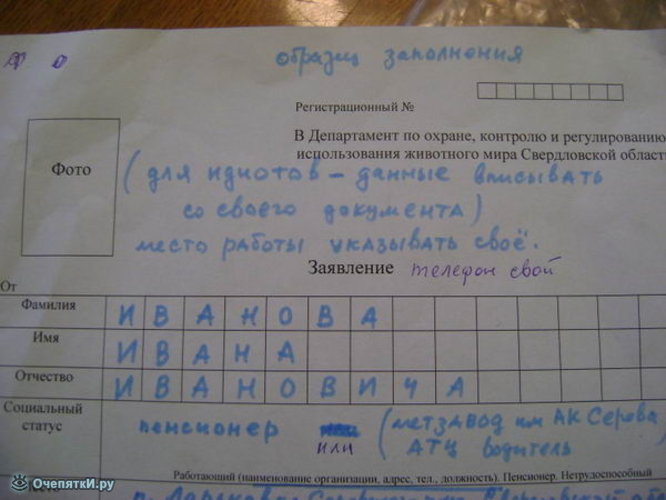 образец заполнения
Регистрационный №
В Департамент по охране, контролю и регулированию
использования животного мира Свердловской област
Фото
(для идиотов - данные вписывать
со своего документа)
место работы указывать своё.
Заявление телефон свой
От
Фамилия ИВАНОВА
Имя ИВАНА
Отчество ИВАНОВИЧА
Социальный статус пенсионер или (метзавод им АК Серова
АТЦ водитель
Работающий (наименование организации, адрес, тел., должность). Пенсионер. Нетрудоспособный
ОчепяткИ.ру